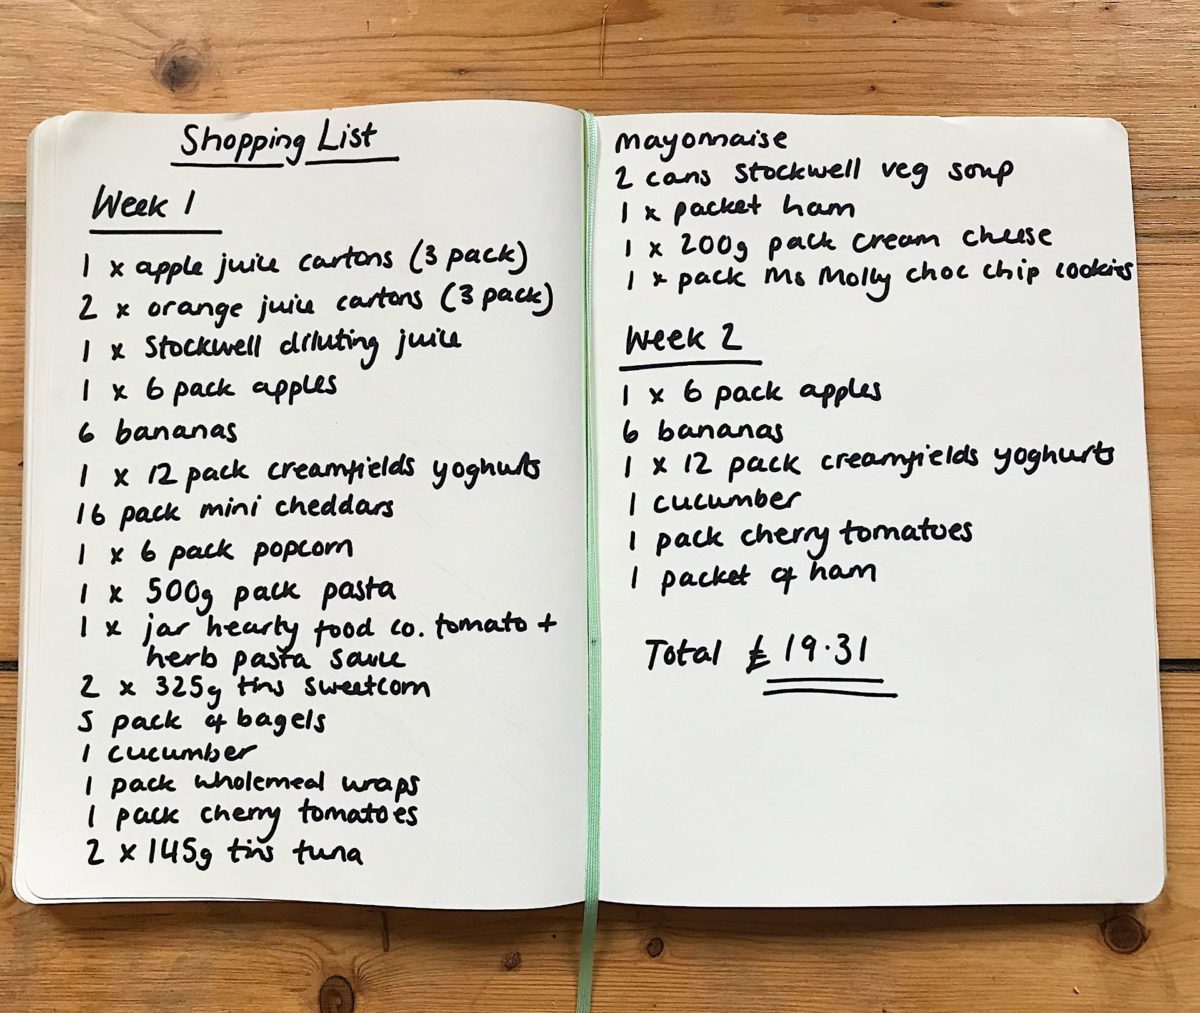 Shopping List
Week 1
1 x apple juice cartons (3 pack)
2 x orange juice cartons (3 pack)
1 x Stockwell diluting juice
1 x 6 pack apples
6 bananas
1 x 12 pack creamfields yoghurts
16 pack mini cheddars
1 x 6 pack popcorn
1 x 500g pack pasta
1 x jar hearty food co. tomato +
herb pasta sauce
2 x 325g tins sweetcorn
5 pack of bagels
1 cucumber
1 pack wholemeal wraps
1 pack cherry tomatoes
2 x 145g tins tuna
mayonnaise
2 cans Stockwell veg soup
1 x packet ham
1 x 200g pack cream cheese
1 x pack Ms Molly choc chip cookies
Week 2
1 x 6 pack apples
6 bananas
1 x 12 pack creamfields yoghurts
1 cucumber
1 pack cherry tomatoes
1 packet of ham
Total £19.31